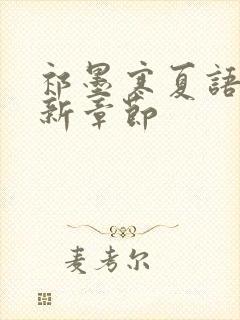 祁墨寒夏語
新章節
麦考尔